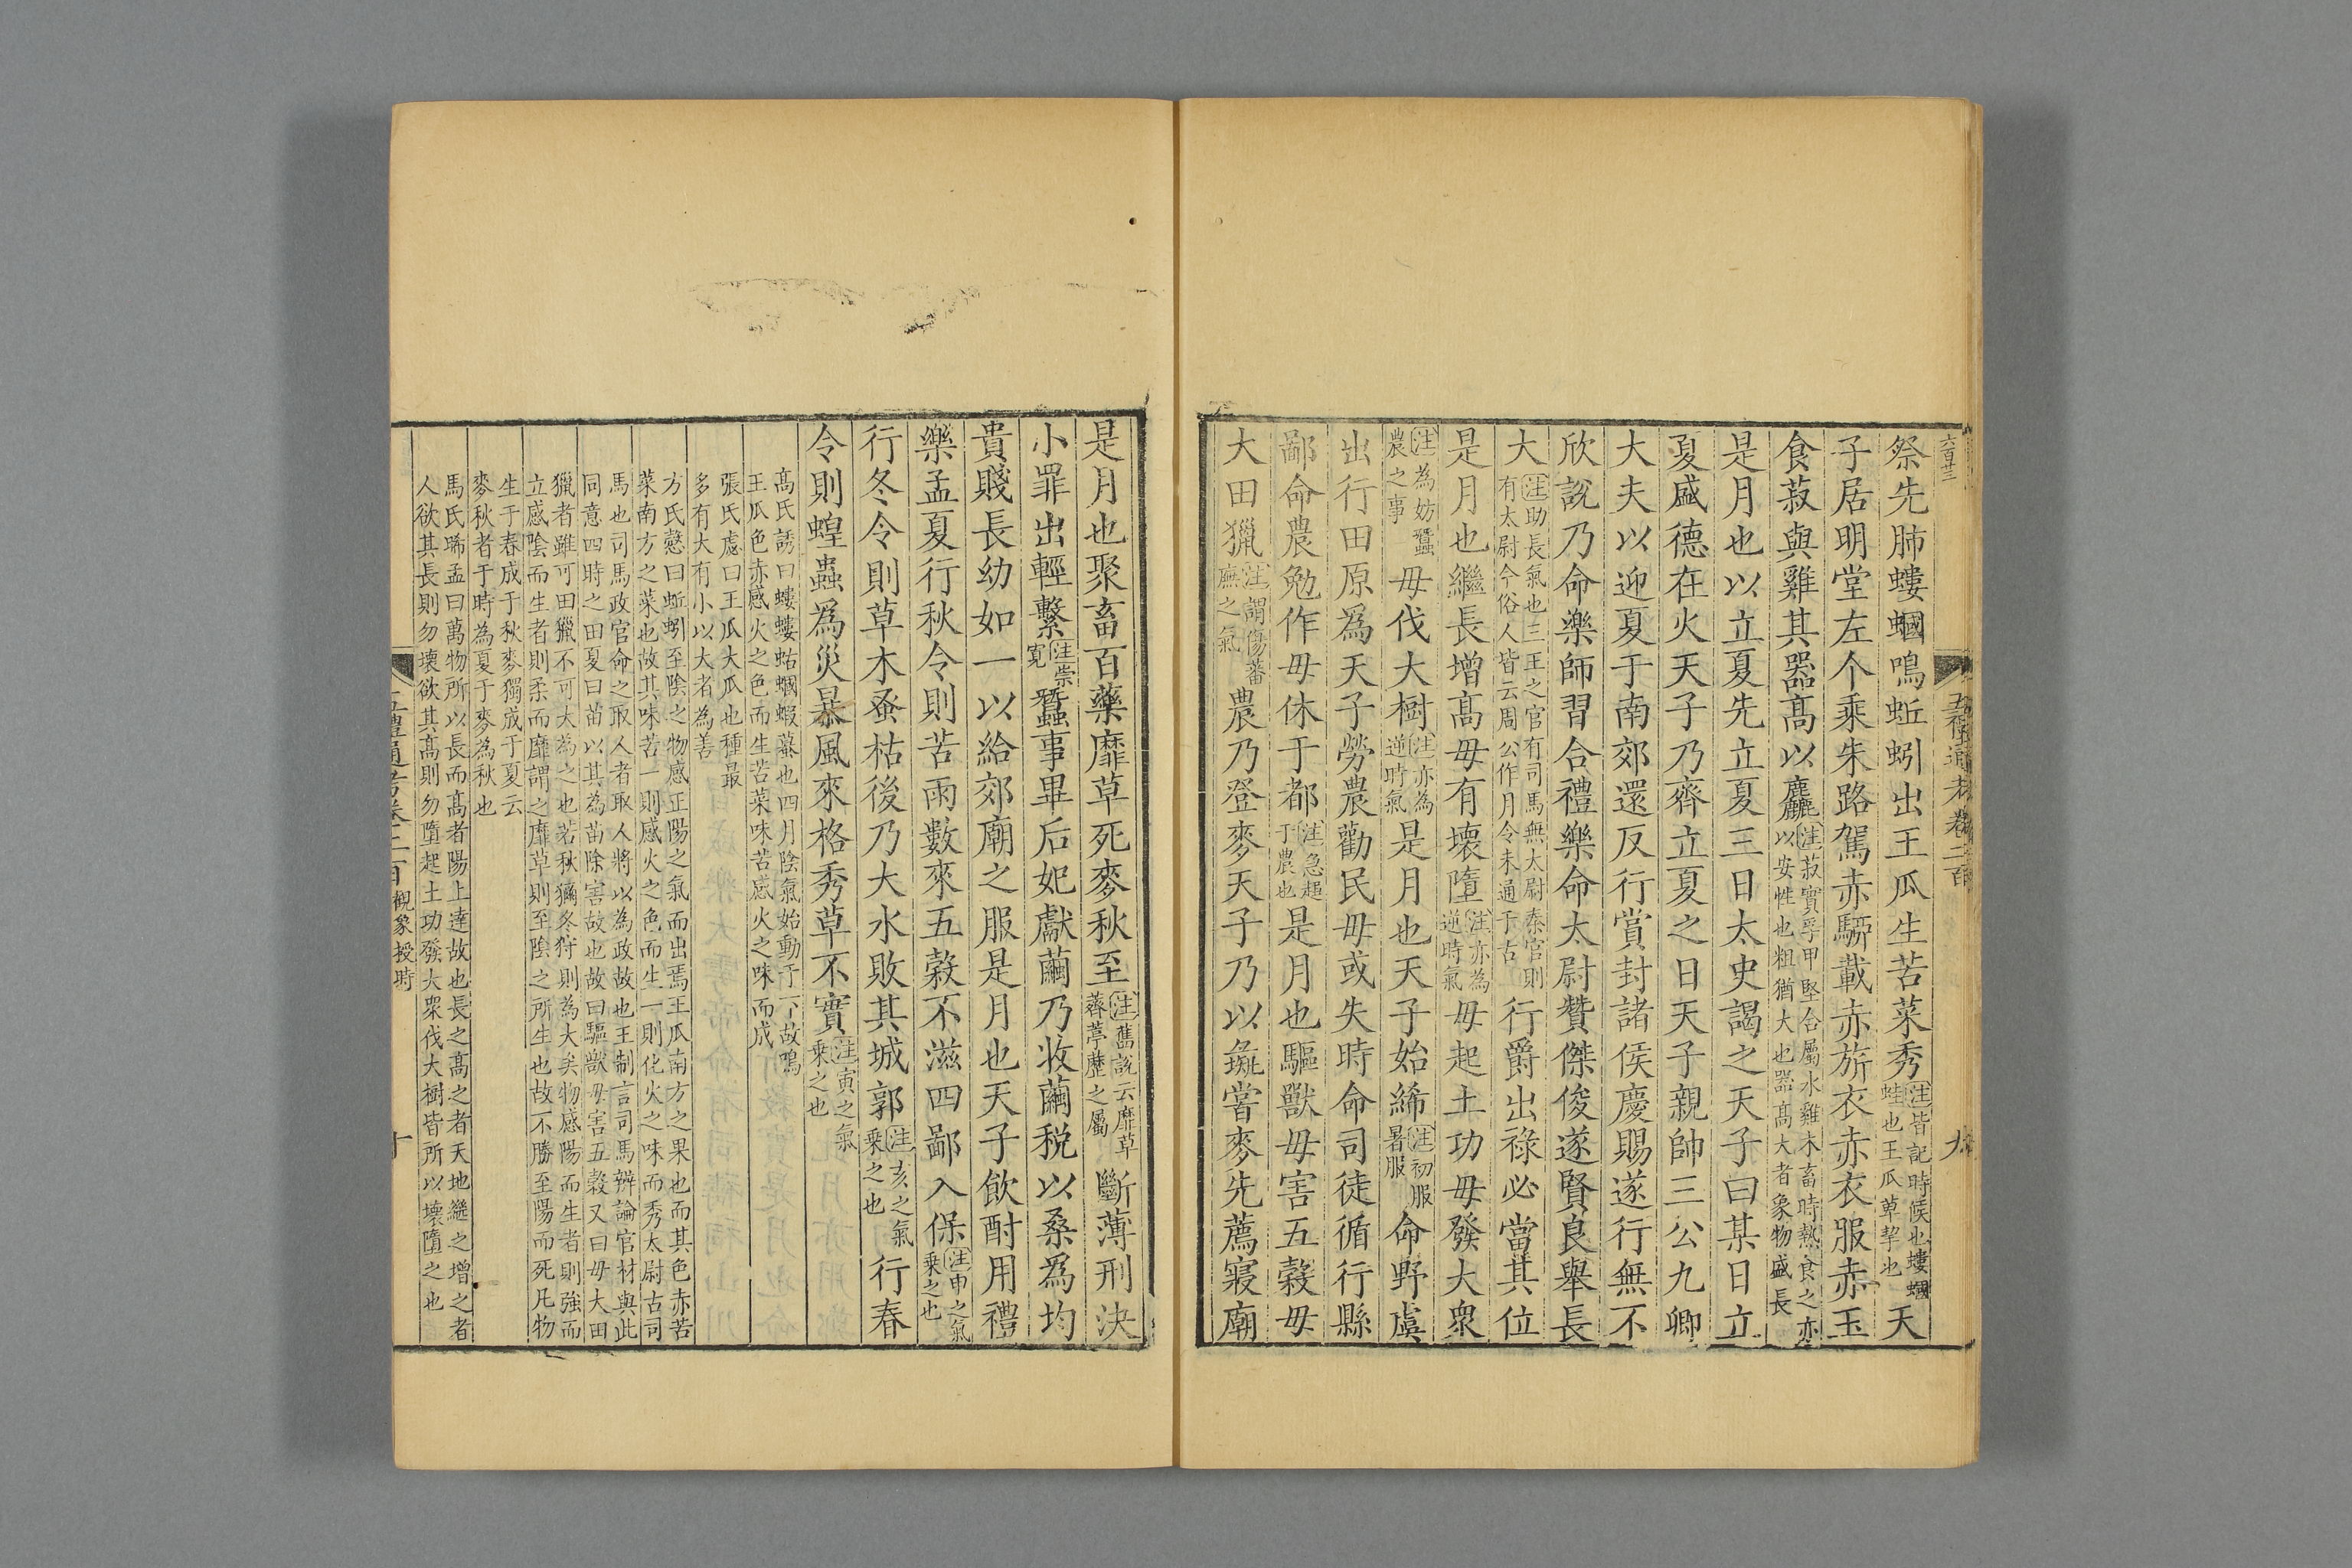 六百廿三
五禮通考卷二百
九
祭先肺螻蟈鳴蚯蚓出王瓜生苦菜秀注皆記時候也螻蟈蛙也王瓜萆挈也天
子居明堂左个乘朱路駕赤駵載赤旂衣赤衣服赤玉
食菽與雞其器高以麤注菽實孚甲堅合屬水雞木畜時熱食之亦以安性也粗猶大也器高大者象物盛長
是月也以立夏先立夏三日太史謁之天子曰某日立
夏盛德在火天子乃齊立夏之日天子親帥三公九卿
大夫以迎夏于南郊還反行賞封諸侯慶賜遂行無不
欣說乃命樂師習合禮樂命太尉贊傑俊遂賢良舉長
大注助長氣也三王之官有司馬無太尉秦官則有太尉今俗人皆云周公作月令未通于古行爵出祿必當其位
是月也繼長增高毋有壞墮注亦為逆時氣毋起土功毋發大衆
注為妨蠶農之事毋伐大樹注亦為逆時氣是月也天子始絺注初服暑服命野虞
出行田原爲天子勞農勸民毋或失時命司徒循行縣
鄙命農勉作毋休于都注急趨于農也是月也驅獸毋害五穀毋
大田獵注謂傷蕃廡之氣農乃登麥天子乃以彘嘗麥先薦寢廟
是月也聚畜百藥靡草死麥秋至注舊說云靡草薺葶藶之屬斷薄刑決
小罪出輕繫注崇寬蠶事畢后妃獻繭乃收繭稅以桑為均
貴賤長幼如一以給郊廟之服是月也天子飲酎用禮
樂孟夏行秋令則苦雨數來五穀不滋四鄙入保注申之氣乗之也
行冬令則草木蚤枯後乃大水敗其城郭注亥之氣乗之也行春
令則蝗蟲爲災暴風來格秀草不實注寅之氣乗之也
高氏誘曰螻螻蛄蟈蝦蟇也四月陰氣始動于下故鳴
王瓜色赤感火之色而生苦菜味苦感火之味而成
張氏虙曰王瓜大瓜也種最
多有大有小以大者為善
方氏慤曰蚯蚓至陰之物感正陽之氣而出焉王瓜南方之果也而其色赤苦
菜南方之菜也故其味苦一則感火之色而生一則化火之味而秀太尉古司
馬也司馬政官命之取人者取人將以為政故也王制言司馬辨論官材與此
同意四時之田夏曰苗以其為苗除害故也故曰驅獸毋害五穀又曰毋大田
獵者雖可田獵不可大為之也若秋獮冬狩則為大矣物感陽而生者則強而
立感陰而生者則柔而靡謂之靡草則至陰之所生也故不勝至陽而死凡物
生于春成于秋麥獨成于夏云
麥秋者于時為夏于麥為秋也
馬氏晞孟曰萬物所以長而高者陽上達故也長之高之者天地繼之增之者
人欲其長則勿壞欲其高則勿墮起土功發大衆伐大樹皆所以壞墮之也
五禮通考卷二百
觀象授時
十